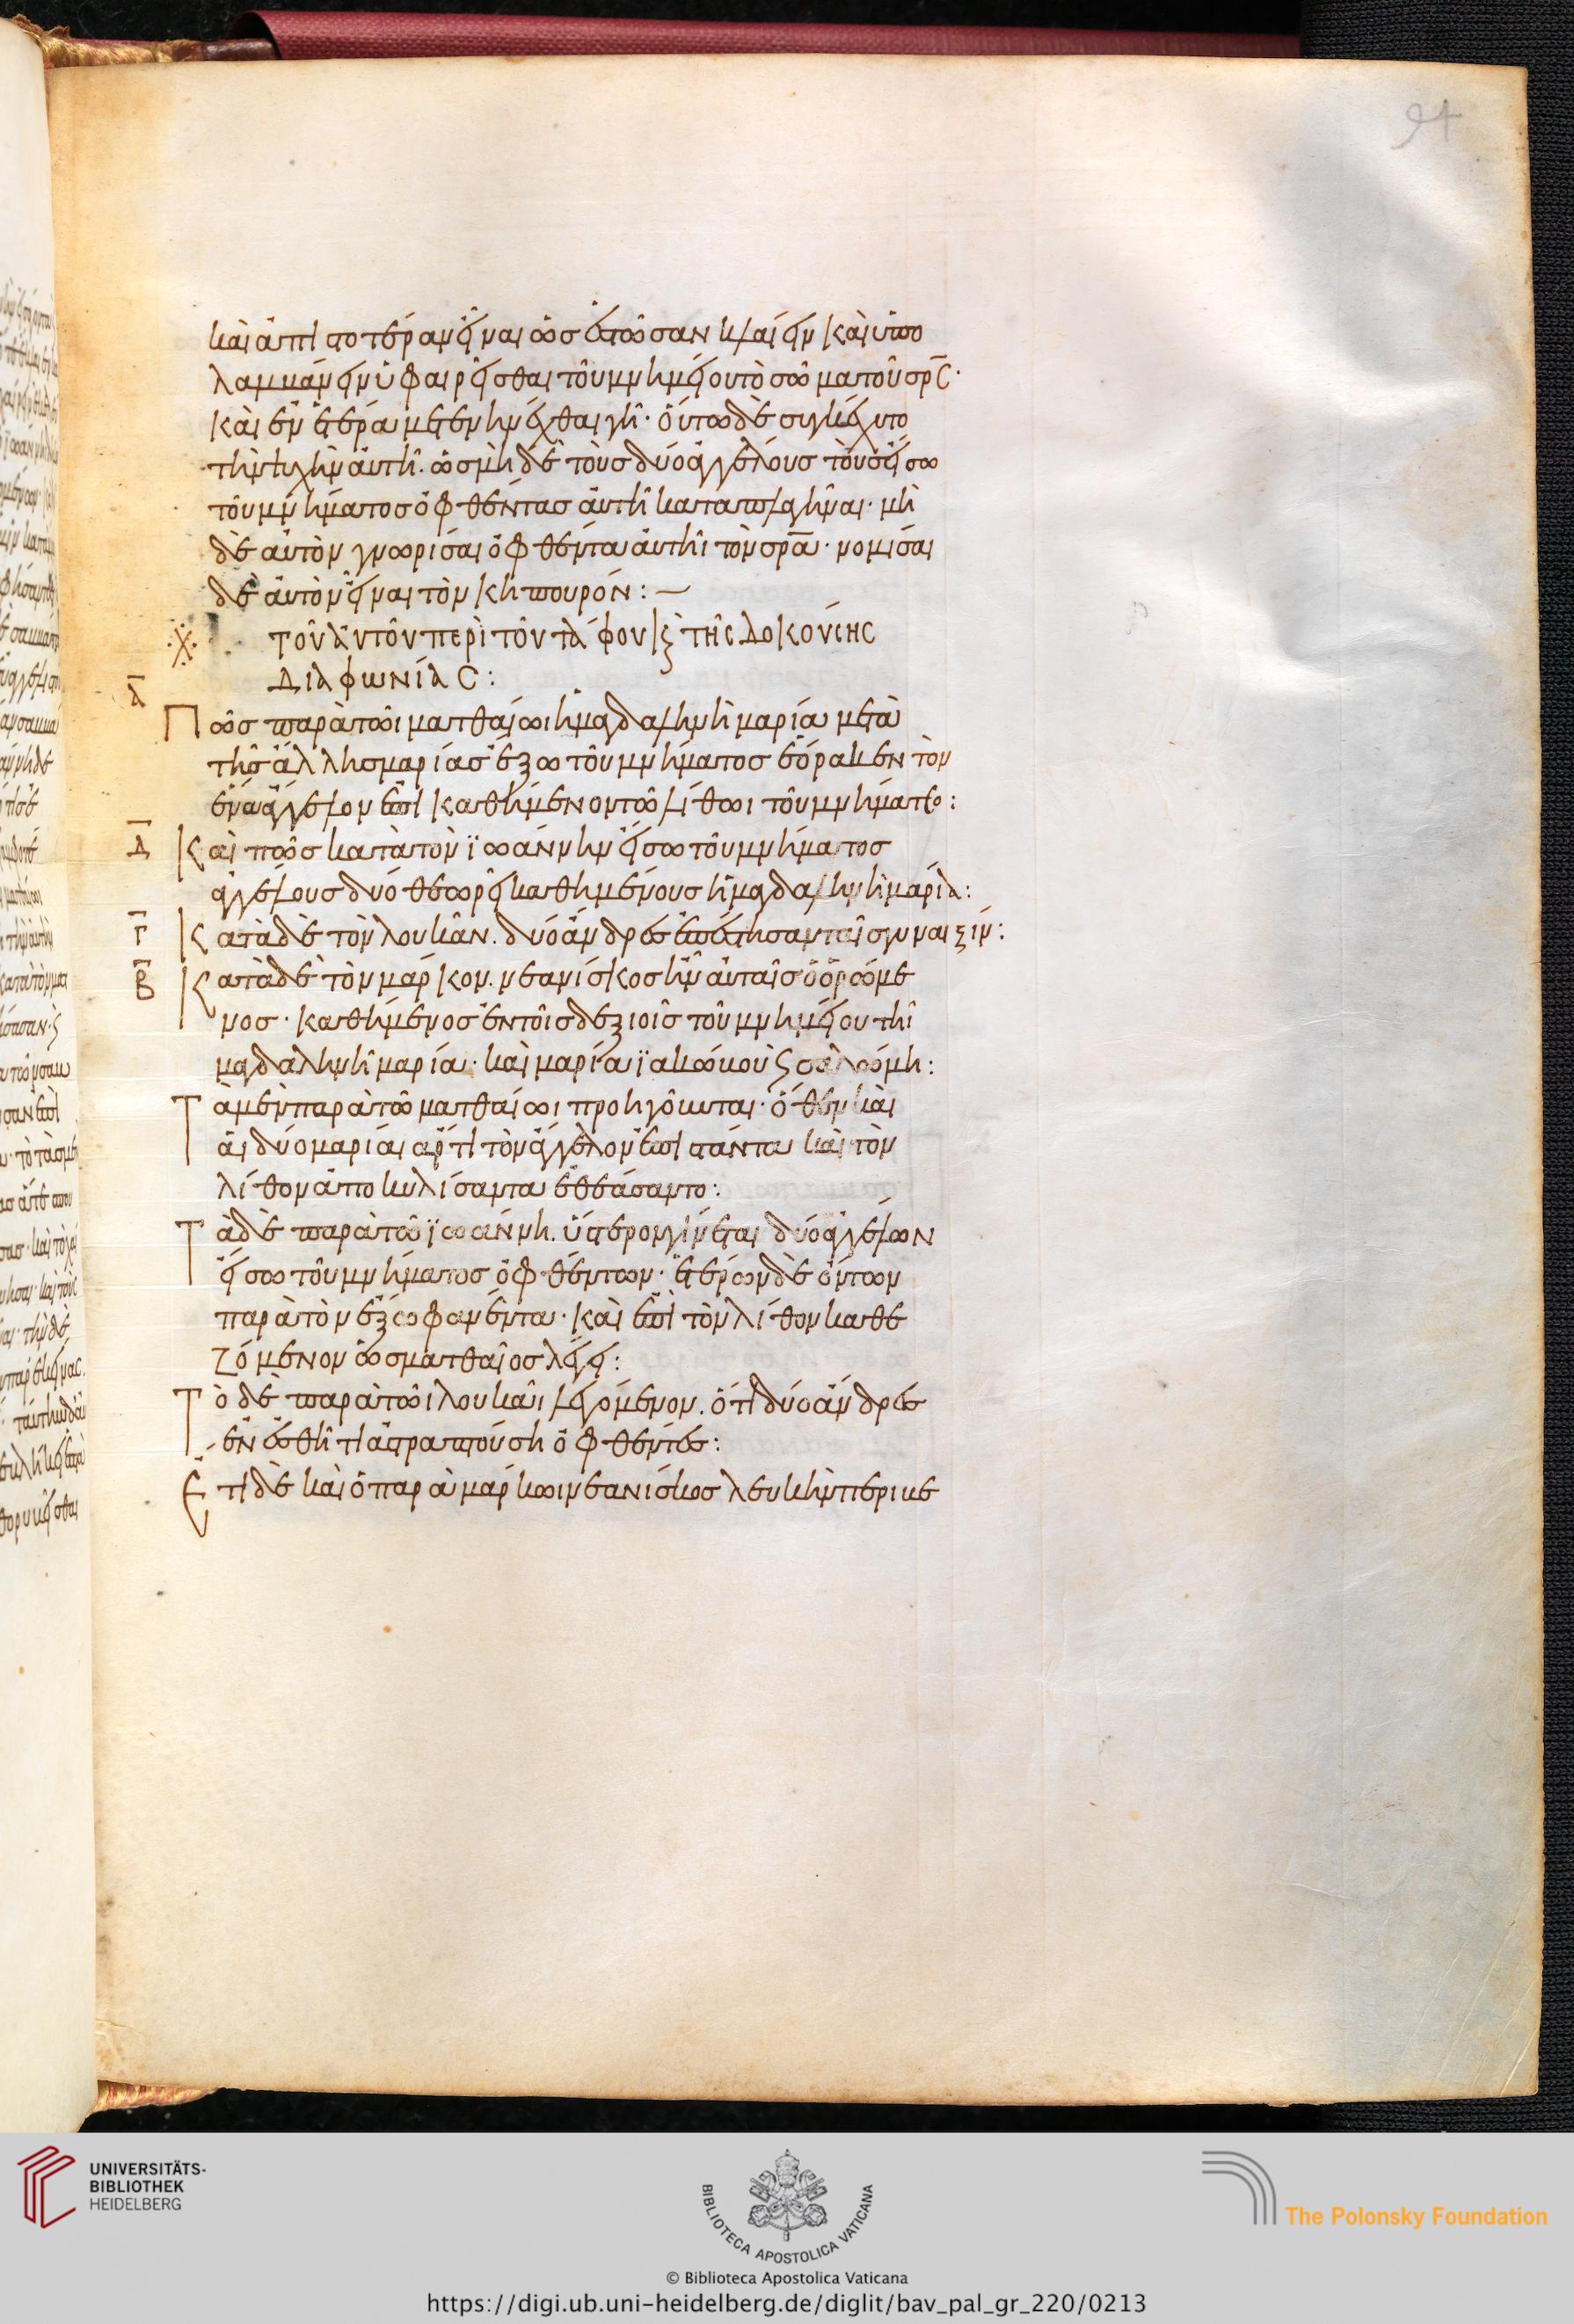 94
καὶ ἀντὶ ποτέραν εἶναι ὡς ἑστῶσαν κλαίειν καὶ ὑπο
λαμβάνειν ὑφαιρεῖσθαι τοῦ μνημείου τὸ σῶμα τοῦ σρ̅ς·
καὶ ἐν ἑτέρα μετενηνέχθαι γῆ· οὕτω δὲ συγκέχυτο
τὴν ψυχὴν αὐτῆ. ὡς μὴ δὲ τοὺς δύο ἀγγέλους τοὺς εἴσω
τοῦ μνήματος ὀφθέντας αὐτῆ καταπλαγῆναι· μὴ
δὲ αὐτὸν γνωρίσαι ὀφθέντα αὐτῆι τὸν σρ̅α· νομίσαι
δὲ αὐτὸν εἶναι τὸν κηπουρόν:—
τοῦ αὐτοῦ περὶ τοῦ τάφου κ̀ς τῆς δοκούσης
διαφωνίας:
α̅ Πῶς παρὰ τῶι ματθαίωι ἡ μαγδαληνὴ μαρία μετὰ
τῆς ἄλλης μαρίας ἔξω τοῦ μνήματος ἑόρακεν τὸν
ἕνα ἄγγελον ἐπικαθήμενον τῶ λίθωι τοῦ μνήματο:
δ̅ Καὶ πῶς κατὰ τὸν ϊωάννην εἴσω τοῦ μνήματος
ἀγγέλους δύο θεωρεῖ καθημένους ἡ μαγδαληνὴ μαρία:
γ̅ Κατὰ δὲ τὸν λουκᾶν. δύο ἄνδρες ἐπέστησαν ταῖς γυναιξίν:
β̅ Κατὰ δὲ τὸν μάρκον. νεανίσκος ἦν αὐταῖς ὁ ὁρώμε
νος· καθήμενος ἐν τοῖς δεξιοῖς τοῦ μνημείου τῆ
μαγδαληνῆ μαρία· καὶ μαρία ϊακώβου ς σαλώμη:
Τὰ μὲν παρὰ τῶ ματθαίωι προηγοῦνται· ὅθεν καὶ
αἱ δύο μαρίαι ἄρτι τὸν ἄγγελον ἐπιστάντα καὶ τὸν
λίθον ἀποκυλίσαντα ἐθεάσαντο:
Τὰ δὲ παρὰ τῶ ϊωάννη. ὕστερον γίνεται δύο ἀγγέλων
εἴσω τοῦ μνήματος ὀφθέντων· ἑτέρων δὲ ὄντων
παρὰ τὸν ἔξω φανέντα· καὶ ἐπὶ τὸν λίθον καθε
ζόμενον ὡς ματθαῖος λέγει:
Τὸ δὲ παρὰ τῶι λουκᾶι λεγόμενον. ὅτι δύο ἄνδρες
ἐν ἐσθῆτι ἀστραπτούση ὀφθέντες:
Ἔτι δὲ καὶ ὁ παρὰ μάρκωι νεανίσκος λευκὴν περιβε
UNIVERSITÄTS-
BIBLIOTHEK
HEIDELBERG
BIBLIOTECA APOSTOLICA VATICANA
The Polonsky Foundation
© Biblioteca Apostolica Vaticana
https://digi.ub.uni-heidelberg.de/diglit/bav_pal_gr_220/0213